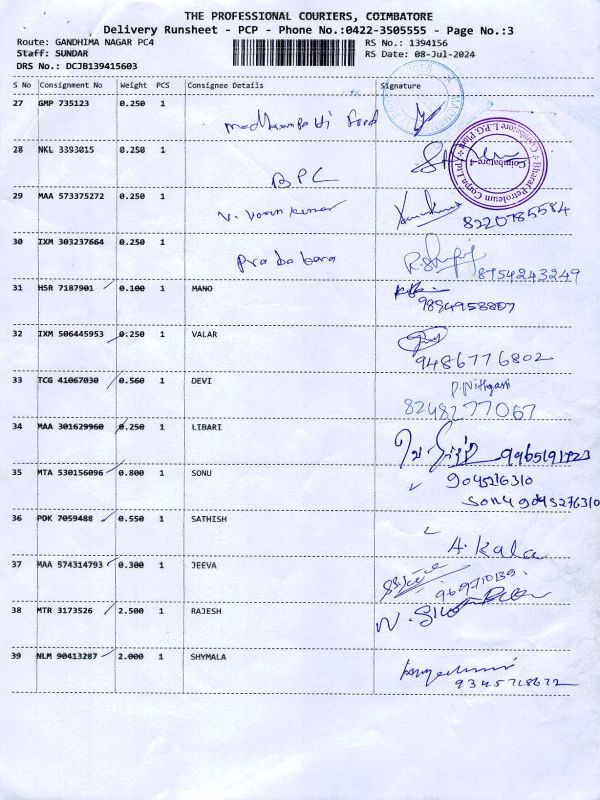 THE PROFESSIONAL COURIERS, COIMBATORE
Delivery Runsheet - PCP - Phone No.:0422-3505555 - Page No.:3
Route: GANDHIMA NAGAR PC4 RS No.: 1394156
Staff: SUNDAR RS Date: 08-Jul-2024
DRS No.: DCJB139415603
S No Consignment No Weight PCS Consignee Details Signature
27 GMP 735123 0.250 1
28 NKL 3393015 0.250 1 BPC
Bharat Petroleum Corpn.Ltd Coimbatore L.P.G Plant Coimbatore
29 MAA 573375272 0.250 1 V. Varun kumar 8220785584
30 IXM 303237664 0.250 1 Prabakara 8754243249
31 HSR 7187901 0.100 1 MANO
9894958807
32 IXM 506445953 0.250 1 VALAR
9486776802
33 TCG 41067030 0.560 1 DEVI
8248277067
34 MAA 301629960 0.250 1 LIBARI 9965191723
35 MTA 530156096 0.800 1 SONU 9045276310
Sonu 9045276310
36 PDK 7059488 0.550 1 SATHISH
A. Kala
37 MAA 574314793 0.300 1 JEEVA
38 MTR 3173526 2.500 1 RAJESH
39 NLM 90413287 2.000 1 SHYMALA
9345718672